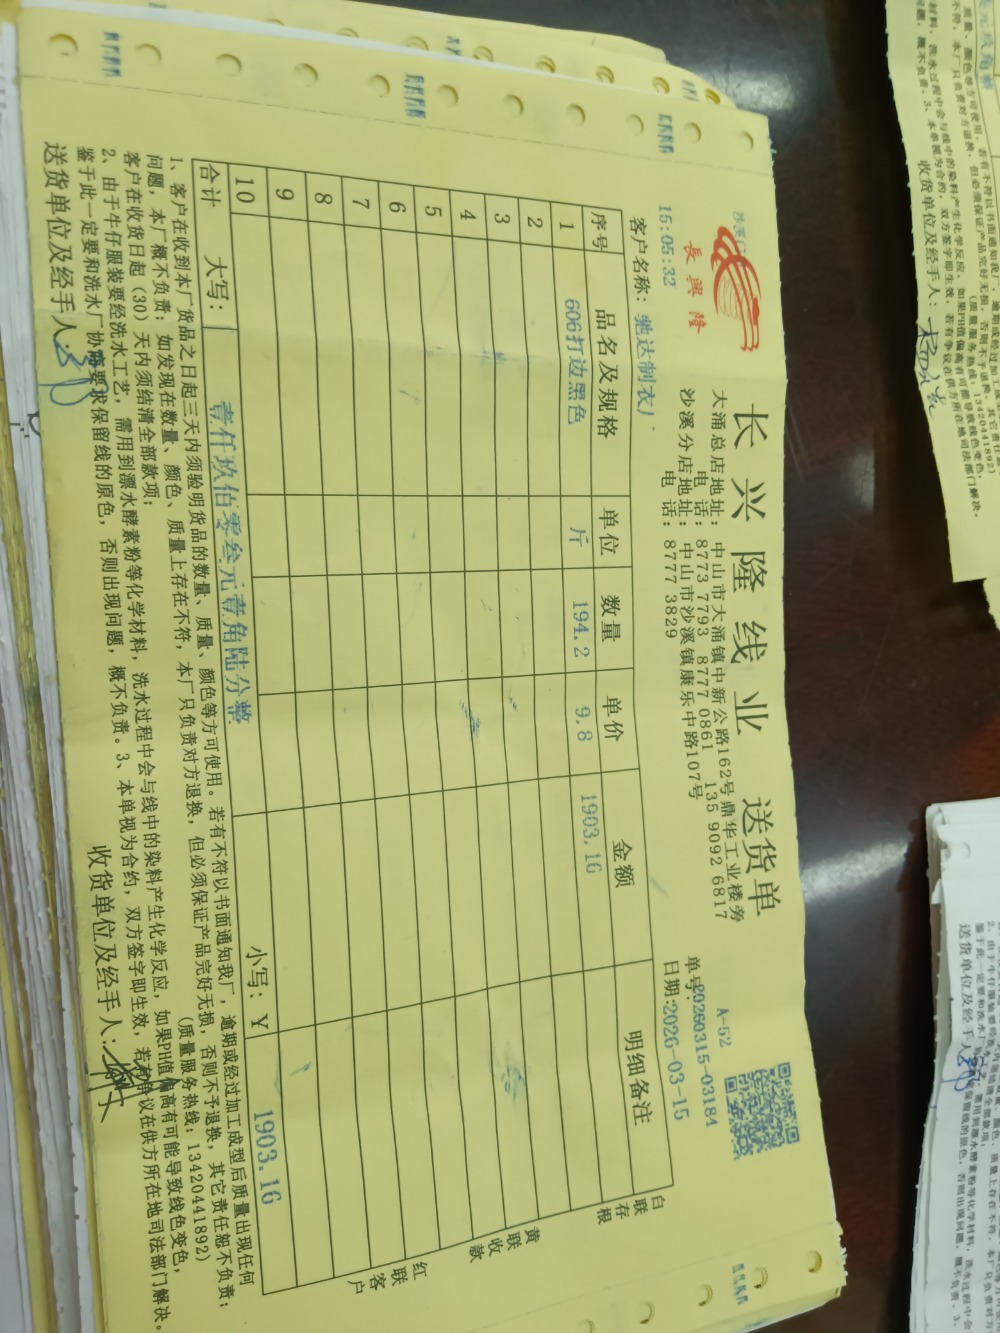 长兴隆线业 送货单
長興隆
大涌总店地址：中山市大涌镇中新公路162号鼎华工业楼旁
电 话：8773 7793 8777 0861 135 9092 6817
沙溪分店地址：中山市沙溪镇康乐中路107号
电 话：8777 3829
A-52
单号:20260315-03184
日期:2026-03-15
15:05:32
客户名称：驰达制衣厂
序号 品名及规格 单位 数量 单价 金额 明细备注
1 606打边黑色 斤 194.2 9.8 1903.16
2
3
4
5
6
7
8
9
10
合计 大写： 壹仟玖佰零叁元壹角陆分整 小写：￥ 1903.16
白联存根
黄联收款
红联客户
1、客户在收到本厂货品之日起三天内须验明货品的数量、质量、颜色等方可使用。若有不符以书面通知我厂，逾期或经过加工成型后质量出现任何
问题，本厂概不负责；如发现在数量、颜色、质量上存在不符，本厂只负责对方退换，但必须保证产品完好无损，否则不予退换，其它责任恕不负责；
客户在收货日起（30）天内须结清全部款项； （质量服务热线：13420441892）
2、由于牛仔服装要经洗水工艺，需用到漂水酵素粉等化学材料，洗水过程中会与线中的染料产生化学反应，如果PH值偏高有可能导致线色变色，
鉴于此一定要和洗水厂协商要求保留线的原色，否则出现问题，概不负责。3、本单视为合约，双方签字即生效，若有争议在供方所在地司法部门解决。
送货单位及经手人： 收货单位及经手人：